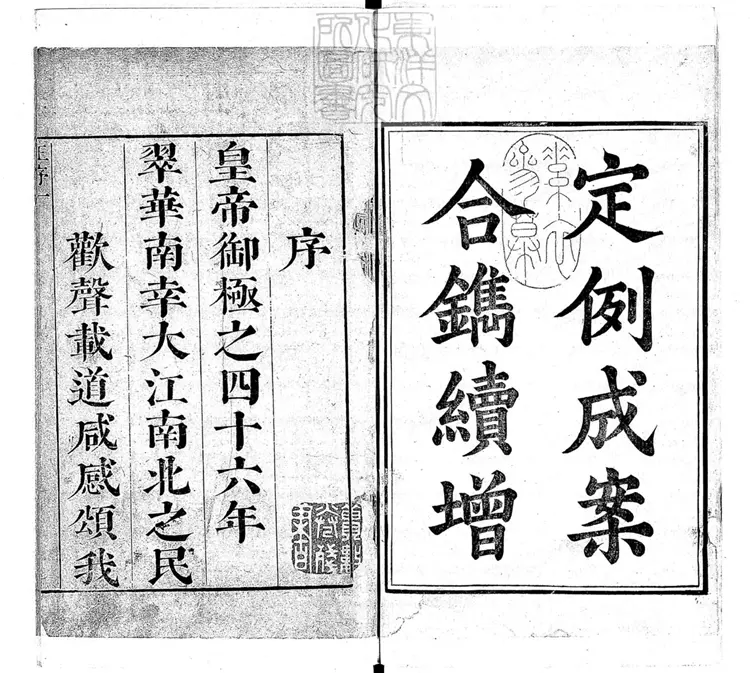 定例成案
合鐫續增
序
皇帝御極之四十六年
翠華南幸大江南北之民
歡聲載道咸感頌我
東洋文
化研究
所圖書